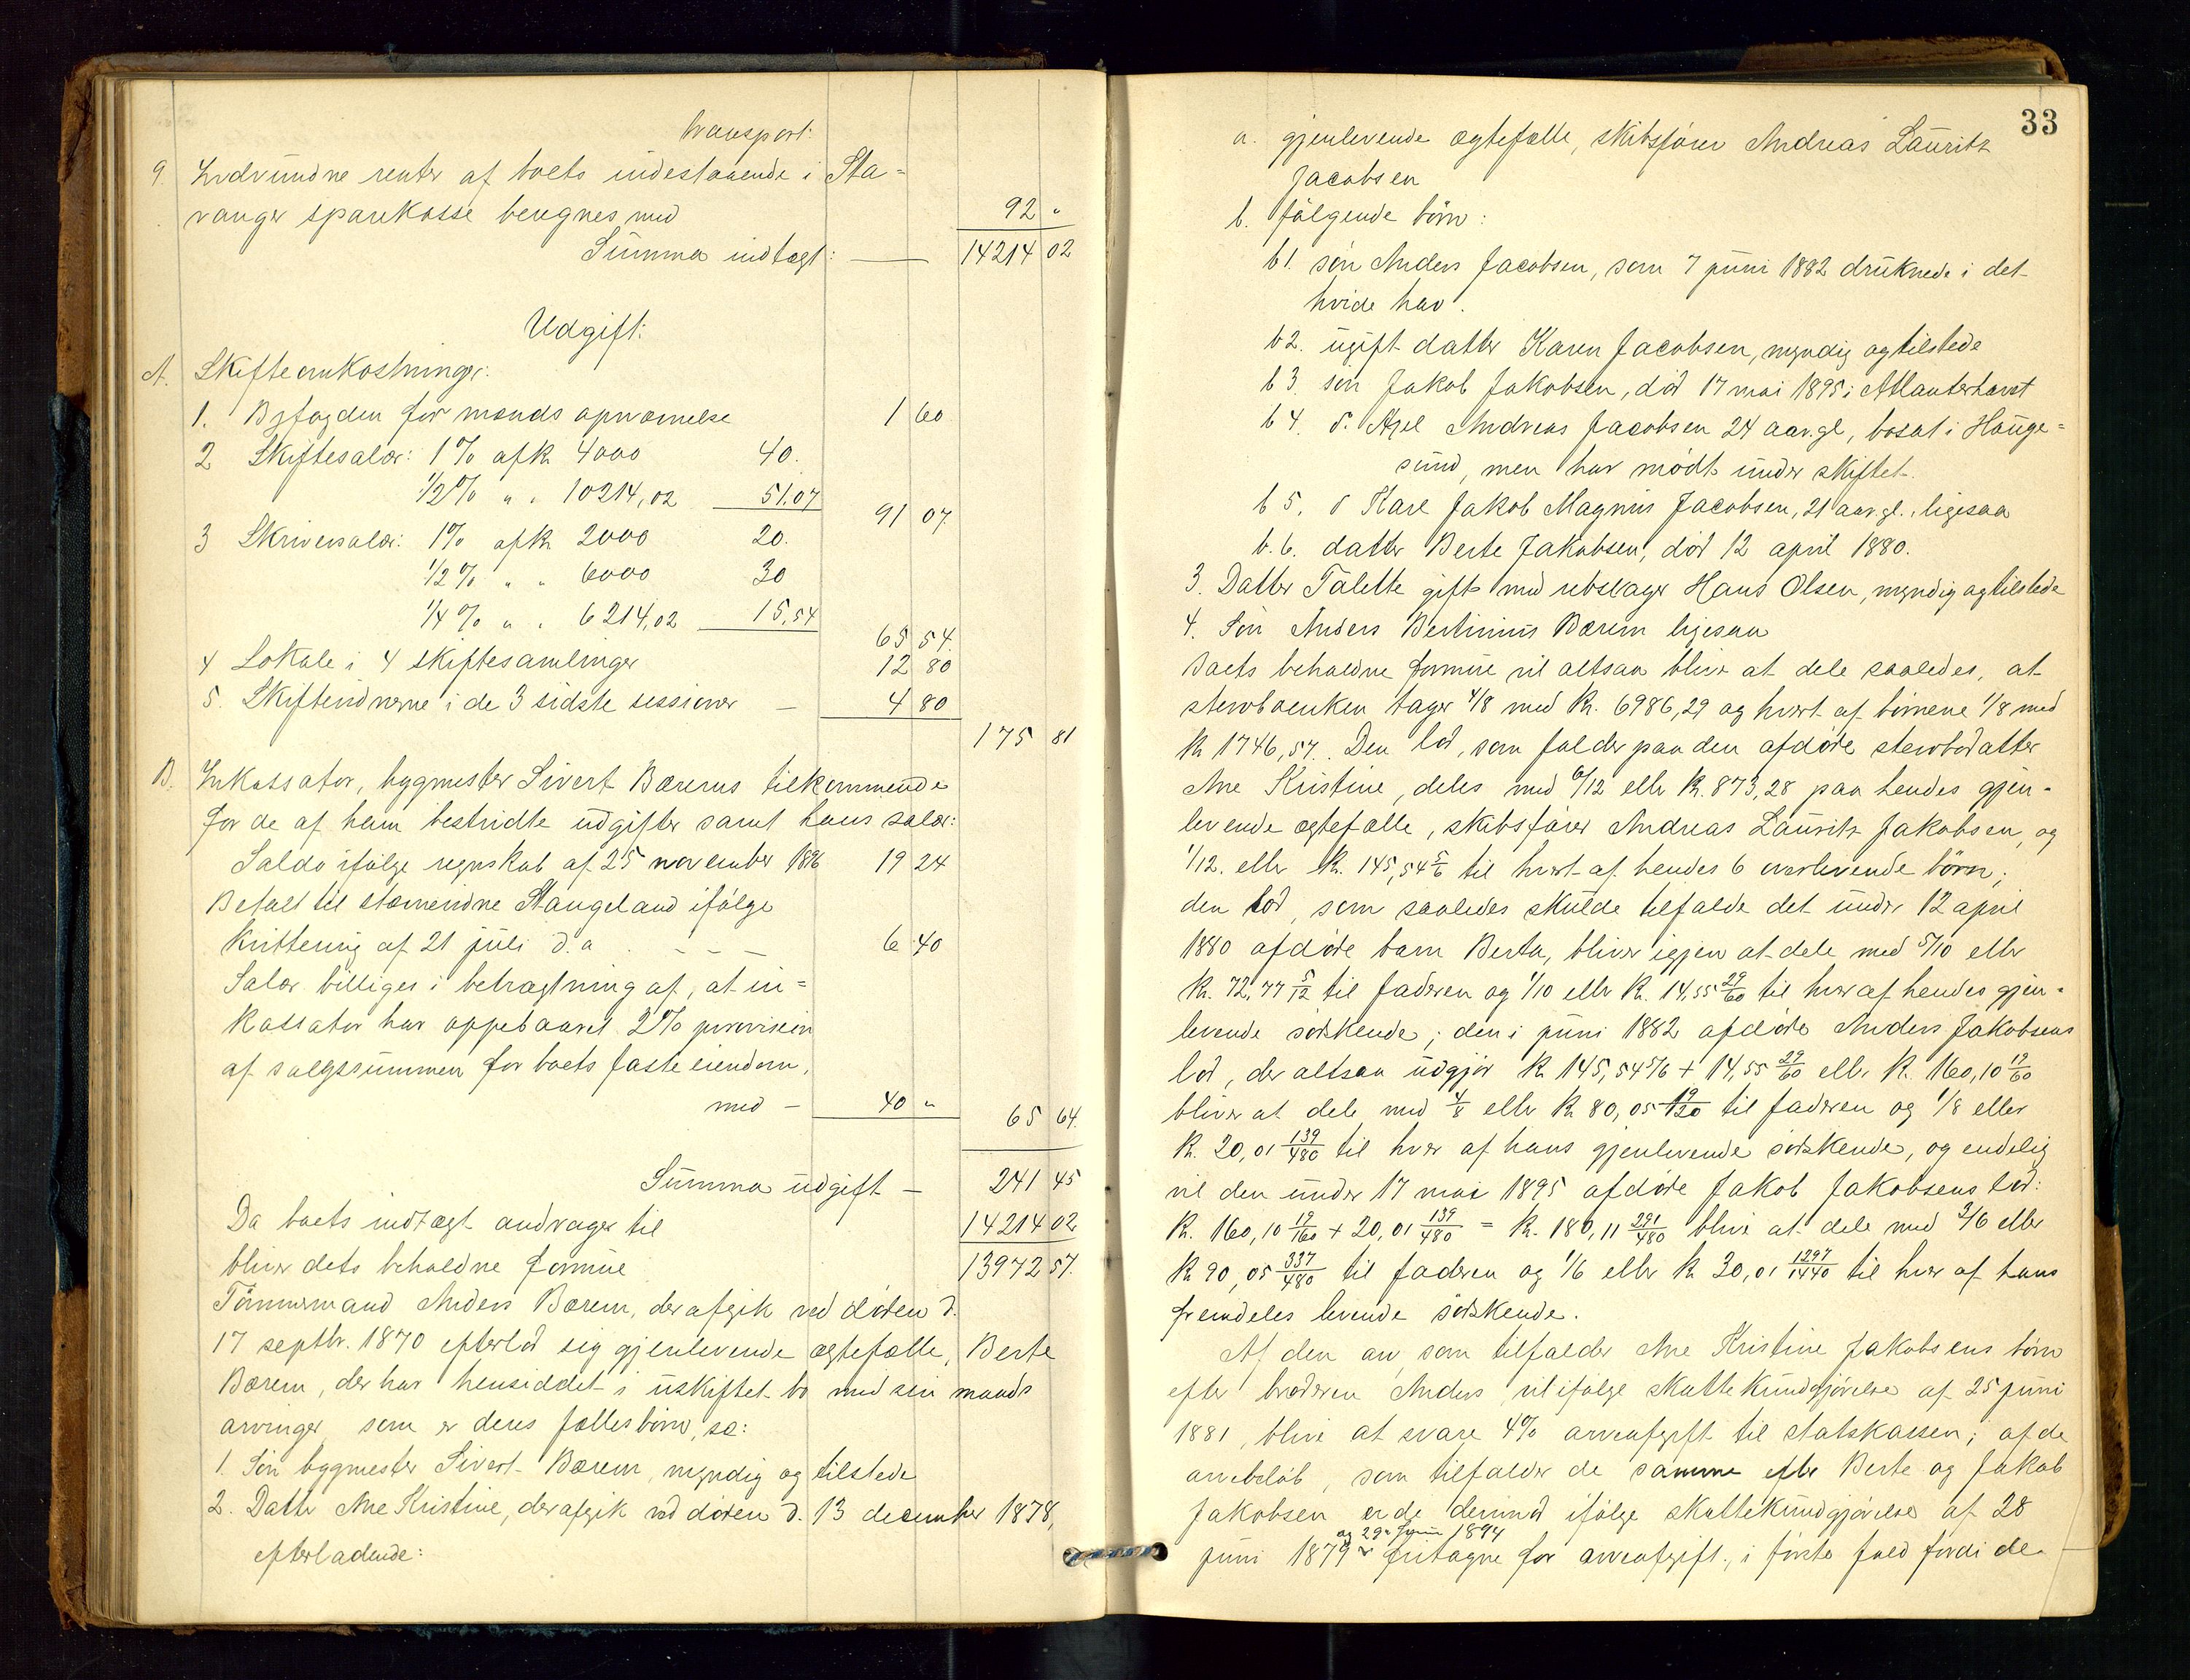 transport:
9. Indvundne renter af boets indestaaende i Sta=
vanger sparekasse beregnes med 92 "
Summa indtægt: 14214 02
Udgift:
A. Skifteomkostninger:
1. Byfogden for mænds opnævnelse 1 60
2 Skiftesalær: 1% af kr 4000 40.
1/2% " " 10214,02 51.07
91 07.
3 Skriversalær: 1% af kr 2000 20.
1/2% " " 6000 30
1/4% " " 6214,02 15,54
65 54.
4 Lokale i 4 skiftesamlinger 12 80
5. Skiftevidnerne i de 3 sidste sessioner — 4 80
175 81
B. Inkassator, bygmester Sivert Bærems tilkommende
for de af ham bestridte udgifter samt hans salær:
Saldo ifölge regnskab af 25 november 1896 19 24
Betalt til stævnevidne Stangeland ifölge
kvittering af 21 juli d.a. - - - 6 40
Salær billiges i betragtning af, at in=
kassator har oppebaaret 2% provision
af salgssummen for boets faste eiendom,
med — 40 "
65 64.
Summa udgift — 241 45
Da boets indtægt andrager til 14214 02
bliver dets beholdne formue 13972 57.
Tömmermand Anders Bærem, der afgik ved döden d.
17 septbr. 1870 efterlod sig gjenlevende ægtefælle, Berte
Bærem, der har hensiddet i uskiftet bo med sin mands
arvinger, som er deres fællesbörn, sc:
1. Sön bygmester Sivert Bærem, myndig og tilstede
2. Datter Ane Kristine, der afgik ved döden d. 13 december 1878,
efterladende:
33
a. gjenlevende ægtefælle, skibsförer Andreas Lauritz
Jacobsen
b. fölgende börn:
b1. sön Anders Jacobsen, som 7 juni 1882 druknede i det
hvide hav.
b2. ugift datter Karen Jacobsen, myndig og tilstede
b3. sön Jakob Jakobsen, död 17 mai 1895 i Atlanterhavet
b4. s. Axel Andreas Jacobsen 24 aar gl, bosat i Hauge=
sund, men har mödt under skiftet.
b5. s Karl Jakob Magnus Jacobsen, 21 aar gl. ligesaa
b.6. datter Berte Jakobsen, död 12 april 1880.
3. Datter Talette gift med rebslager Hans Olsen, myndig og tilstede
4. Sön Anders Bertinius Bærem ligesaa
Boets beholdne formue vil altsaa blive at dele saaledes, at
stervboenken tager 4/8 med kr. 6986,29 og hvert af börnene 1/8 med
kr 1746,57. Den lod, som falder paa den afdöde stervbodatter
Ane Kristine, deles med 6/12 eller kr. 873,28 paa hendes gjen=
levende ægtefælle, skibsförer Andreas Lauritz Jakobsen, og
1/12. eller kr. 145,54 5/6 til hvert af hendes 6 overlevende börn;
den lod, som saaledes skulde tilfalde det under 12 april
1880 afdöde barn Berta, bliver igjen at dele med 5/10 eller
kr. 72,77 5/12 til faderen og 1/10 eller kr. 14,55 29/60 til hver af hendes gjen=
levende södskende; den i juni 1882 afdöde Anders Jakobsens
lod, der altsaa udgjör kr 145,54 5/6 + 14,55 29/60 eller kr. 160,10 19/60
bliver at dele med 4/8 eller kr 80,05 19/120 til faderen og 1/8 eller
kr. 20,01 139/480 til hver af hans gjenlevende södskende, og endelig
vil den under 17 mai 1895 afdöde Jakob Jakobsens lod:
kr. 160,10 19/160 + 20,01 139/480 = kr. 180,11 291/480 blive at dele med 3/6 eller
kr 90,05 337/480 til faderen og 1/6 eller kr 30,01 1297/1440 til hver af hans
fremdeles levende södskende.
Af den arv, som tilfalder Ane Kristine Jakobsens börn
efter broderen Anders, vil ifölge skattekundgjörelse af 25 juni
1881, blive at svare 4% arveafgift til statskassen; af de
arvebelöb, som tilfalder de samme efter Berte og Jakob
Jakobsen er de derimod ifölge skattekundgjörelse af 28
og 29de Juni 1894
juni 1879 fritagne for arveafgift, i förste fald fordi de